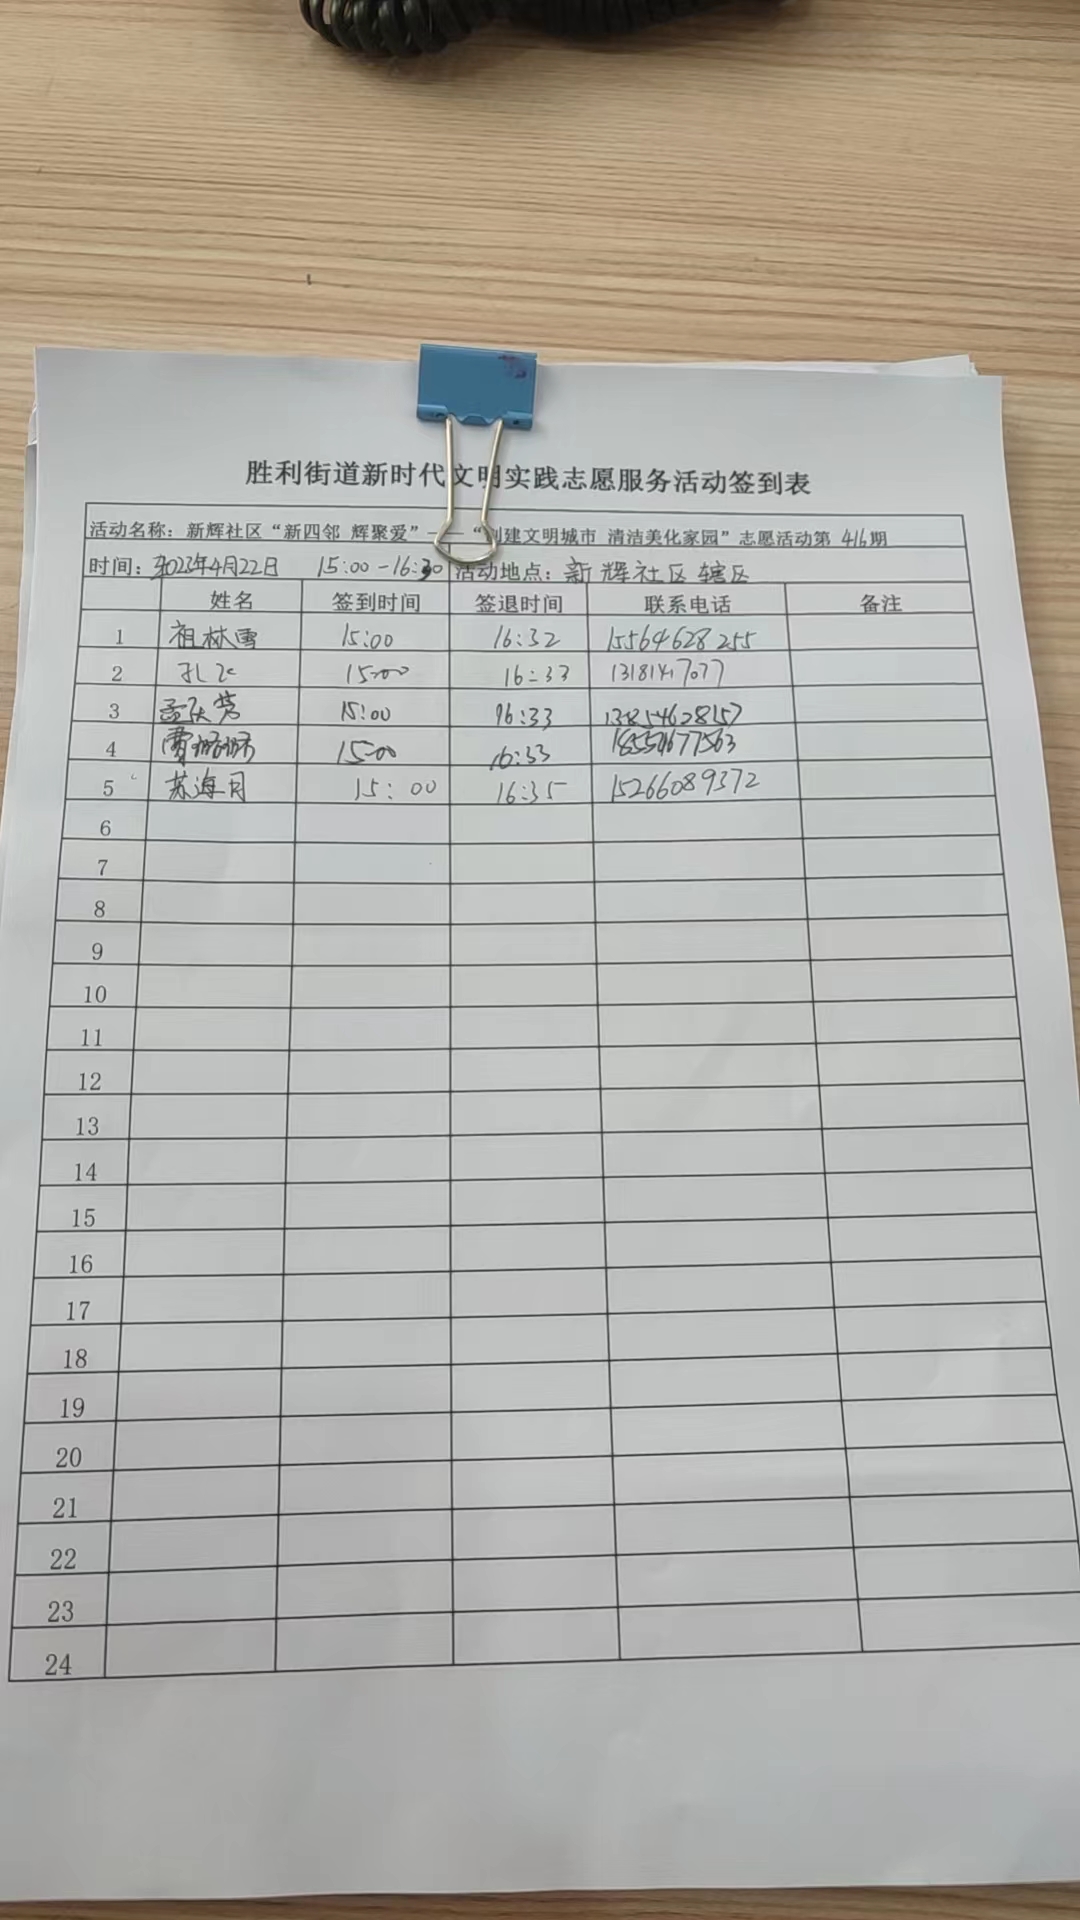 胜利街道新时代文明实践志愿服务活动签到表
活动名称：新辉社区“新四邻 辉聚爱”——“创建文明城市 清洁美化家园”志愿活动第 416期
时间：2023年4月22日 15:00-16:30 活动地点：新辉社区辖区
姓名 签到时间 签退时间 联系电话 备注
1 祖林雪 15:00 16:32 15564628255
2 孔 15:00 16:33
3 15:00 16:33 13854628157
4 贾婷婷 15:00 16:33 18554677563
5 苏海月 15:00 16:35 15266089372
6
7
8
9
10
11
12
13
14
15
16
17
18
19
20
21
22
23
24